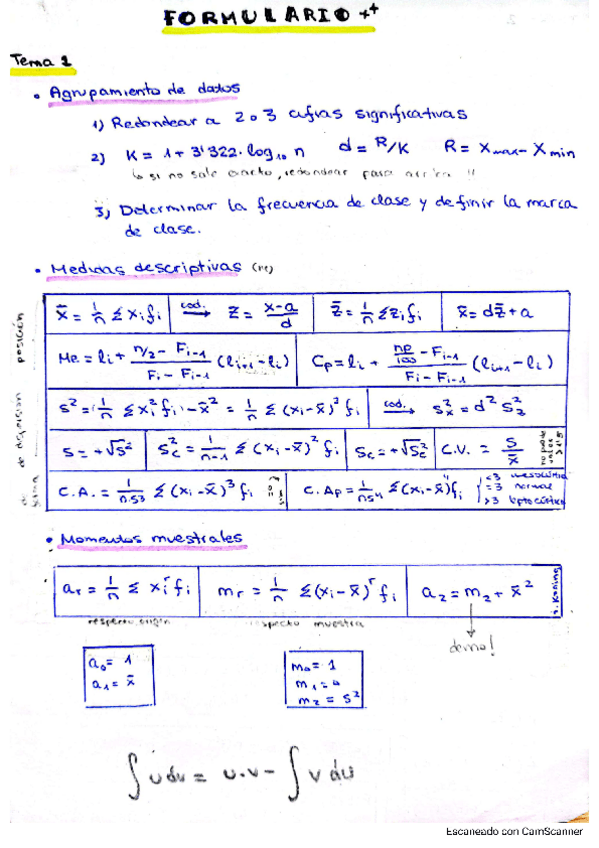 FORMULARIO ++
Tema 1
• Agrupamiento de datos
1) Redondear a 2 o 3 cifras significativas
2) K = 1 + 3'322·log₁₀ n d = R/K R = Xmax - Xmin
↳ si no sale exacto, redondear para arriba !!
3) Determinar la frecuencia de clase y definir la marca
de clase.
• Medidas descriptivas
x̄ = 1/n Σ xᵢfᵢ cod. → z = (x-a)/d z̄ = 1/n Σ zᵢfᵢ x̄ = dz̄ + a
posición
Me = lᵢ + (n/2 - Fᵢ₋₁)/(Fᵢ - Fᵢ₋₁) (lᵢ₊₁ - lᵢ) Cp = lᵢ + (np/100 - Fᵢ₋₁)/(Fᵢ - Fᵢ₋₁) (lᵢ₊₁ - lᵢ)
s² = 1/n Σ xᵢ² fᵢ - x̄² = 1/n Σ (xᵢ - x̄)² fᵢ cod. → sₓ² = d² s_z²
s = +√s² s_c² = 1/(n-1) Σ (xᵢ - x̄)² fᵢ s_c = +√s_c² C.V. = s/x̄
C.A. = 1/(n·s³) Σ (xᵢ - x̄)³ fᵢ C.Ap = 1/(n·s⁴) Σ (xᵢ - x̄)⁴ fᵢ
= 3 normal
> 3 leptocúrtica
• Momentos muestrales
aᵣ = 1/n Σ xᵢʳ fᵢ mᵣ = 1/n Σ (xᵢ - x̄)ʳ fᵢ a₂ = m₂ + x̄²
respecto origen respecto muestra
demo!
a₀ = 1
a₁ = x̄
m₀ = 1
m₁ = 0
m₂ = s²
∫ u dv = u·v - ∫ v du
Escaneado con CamScanner